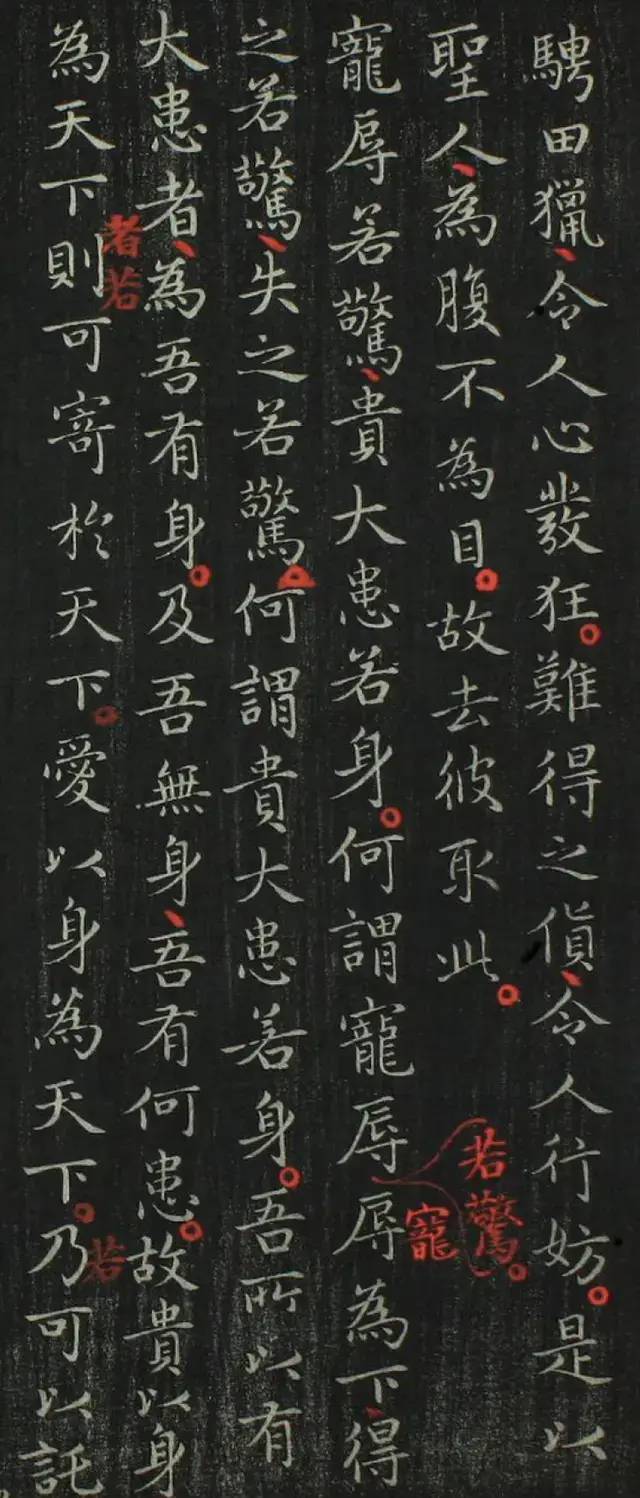 騁田獵、令人心發狂。難得之貨、令人行妨。是以
聖人、為腹不為目。故去彼取此。
若驚。
寵
寵辱若驚、貴大患若身。何謂寵辱辱為下、得
之若驚、失之若驚。何謂貴大患若身。吾所以有
大患者、為吾有身。及吾無身、吾有何患。故貴以身
者若
為天下則可寄於天下。愛以身為天下。乃可以託
若